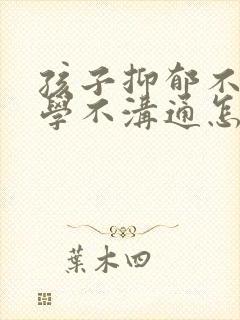 孩子抑郁不
學不溝通怎
葉木四